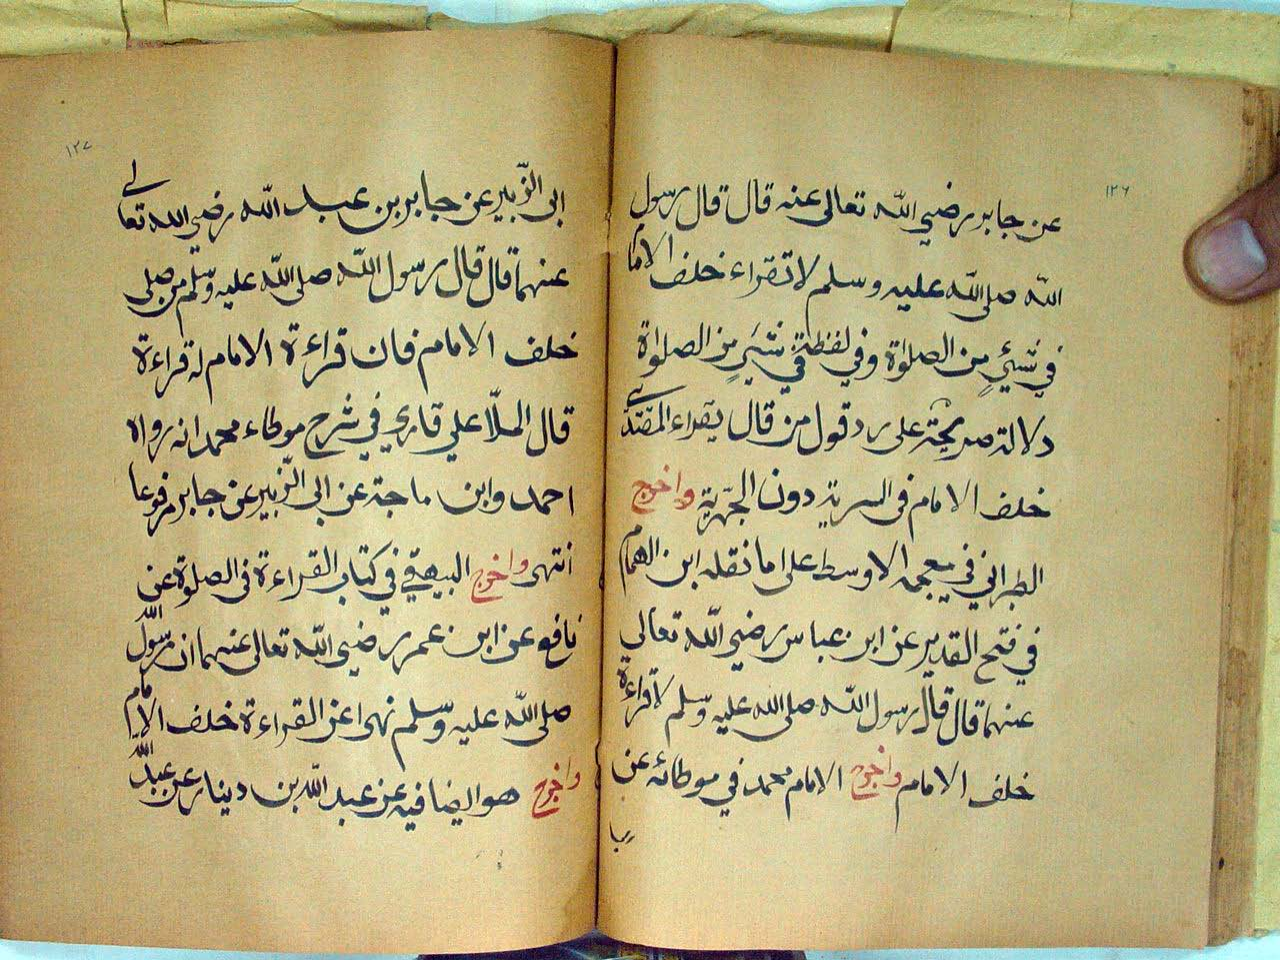 ١٢٦
عن جابر رضي الله تعالى عنه قال قال رسول
الله صلى الله عليه وسلم لا تقراء خلف الامام
في شيءٍ من الصلوٰة وفي لفظة في شيءٍ من الصلوٰة
دلالة صريحة على رد قول من قال يقراء المقتدى
خلف الامام في السرية دون الجهرية واخرج
الطبراني في معجمه الاوسط على ما نقله ابن الهمام
في فتح القدير عن ابن عباس رضي الله تعالى
عنهما قال قال رسول الله صلى الله عليه وسلم لا قراءة
خلف الامام واخرج الامام محمد في موطائه عن
١٢٧
ابى الزّبير عن جابر بن عبد الله رضي الله تعالى
عنهما قال قال رسول الله صلى الله عليه وسلم من صلى
خلف الامام فان قراءة الامام له قراءة
قال الملّا علي قاري في شرح موطاء محمد انه رواه
احمد وابن ماجة عن ابى الزّبير عن جابر مرفوعا
انتهى واخرج البيهقي في كتاب القراءة في الصلوة عن
نافع عن ابن عمر رضي الله تعالى عنهما ان رسول الله
صلى الله عليه وسلم نهى عن القراءة خلف الامام
واخرج هو ايضا فيه عن عبد الله بن دينار عن عبد الله